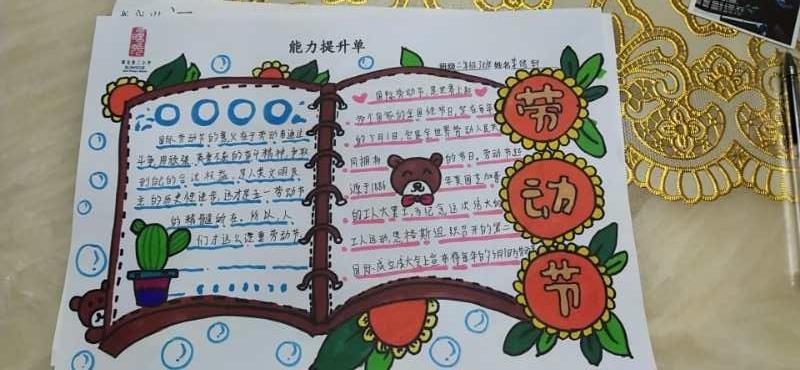 能力提升单
班级二年级 姓名
国际劳动节的意义在于劳动者通过
斗争,用顽强、英勇不屈的奋斗精神,争取
到自己的合法权益,是人类文明民
主的历史性进步,这才是五一劳动节
的精髓所在。所以,人
们才这么注重劳动节。
国际劳动节,是世界上80
多个国家的全国性节日,定在每年
的5月1日,它是全世界劳动人民共
同拥有的节日。劳动节起
源于1886年美国芝加哥
的工人大罢工,为纪念这次伟大的
工人运动,恩格斯组织召开的第二
国际成立大会上宣布将每年的5月1日
劳
动
节